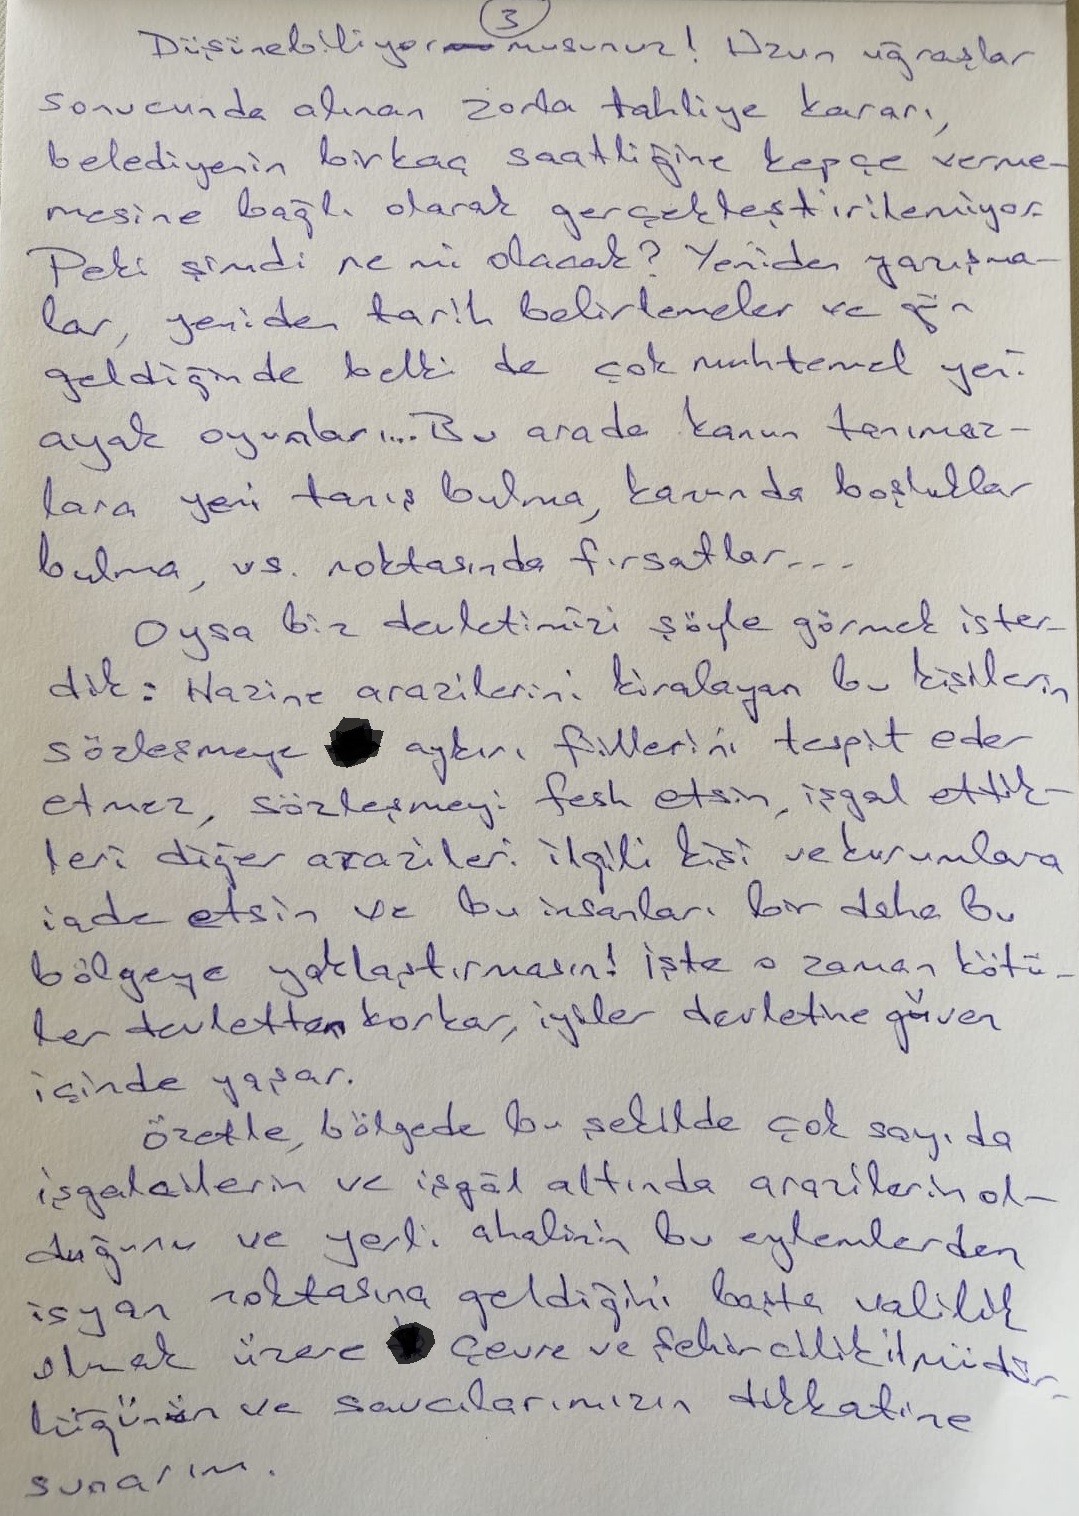 3
Düşünebiliyor musunuz! Uzun uğraşlar
sonucunda alınan zorla tahliye kararı,
belediyenin birkaç saatliğine kepçe verme-
mesine bağlı olarak gerçekleştirilemiyor.
Peki şimdi ne mi olacak? Yeniden yazışma-
lar, yeniden tarih belirlemeler ve gün
geldiğinde belki de çok muhtemel yeni
ayak oyunları... Bu arada kanun tanımaz-
lara yeni tanış bulma, kanunda boşluklar
bulma, vs. noktasında fırsatlar...
Oysa biz devletimizi şöyle görmek ister-
dik: Hazine arazilerini kiralayan bu kişilerin
sözleşmeye aykırı fiillerini tespit eder
etmez, sözleşmeyi fesh etsin, işgal ettik-
leri diğer arazileri ilgili kişi ve kurumlara
iade etsin ve bu insanları bir daha bu
bölgeye yaklaştırmasın! İşte o zaman kötü-
ler devletten korkar, iyiler devletine güven
içinde yaşar.
Özetle, bölgede bu şekilde çok sayıda
işgalcilerin ve işgal altında arazilerin ol-
duğunu ve yerli ahalinin bu eylemlerden
isyan noktasına geldiğini başta valilik
olmak üzere Çevre ve Şehircilik il müdür-
lüğünün ve savcılarımızın dikkatine
sunarım.